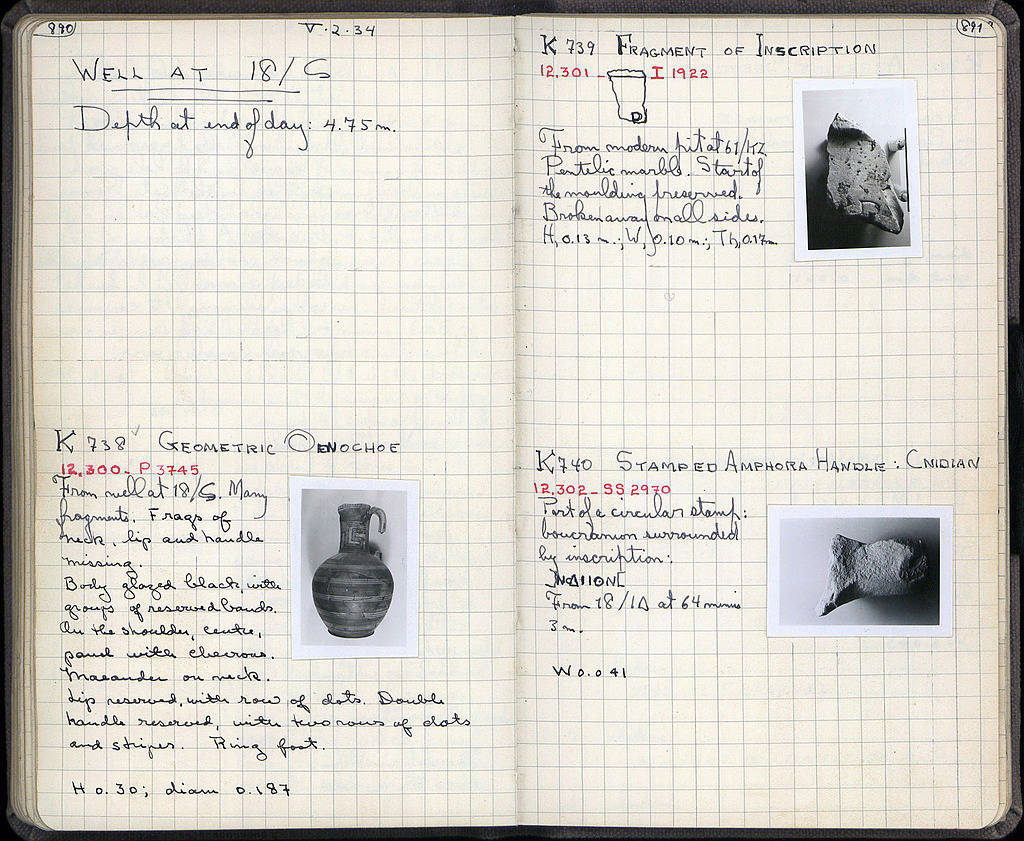 890
V·2·34
WELL AT 18/S
Depth at end of day: 4.75 m.
K 738 ✓ GEOMETRIC OENOCHOE
12.300 - P 3745
From well at 18/S. Many
fragments. Frags of
neck, lip and handle
missing.
Body glazed black, with
groups of reserved bands.
On the shoulder, centre,
panel with chevrons.
Maeander on neck.
Lip reserved, with row of dots. Double
handle reserved, with two rows of dots
and stripes. Ring foot.
H 0.30; diam 0.187
891
K 739 FRAGMENT OF INSCRIPTION
12.301 - I 1922
From modern pit at 61/KZ
Pentelic marble. Start of
the moulding preserved.
Broken away on all sides.
H, 0.13 m.; W, 0.10 m.; Th, 0.17m.
K740 STAMPED AMPHORA HANDLE: CNIDIAN
12.302 - SS 2970
Part of a circular stamp:
boucranion surrounded
by inscription:
]ΝΙΔΙΙΟΝ[
From 18/ΙΔ at 64 minus
3 m.
W 0.041